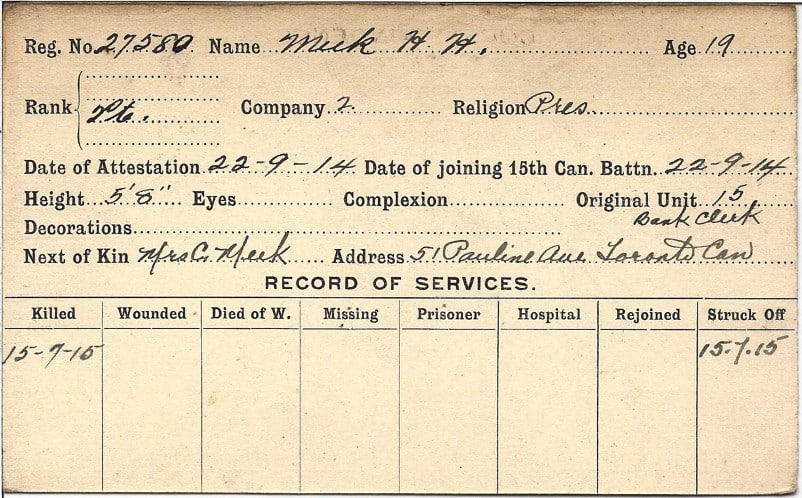 Reg. No. 27580 Name Meek H H. Age 19
Rank Pte. Company 2. Religion Pres.
Date of Attestation 22-9-14 Date of joining 15th Can. Battn. 22-9-14
Height 5'8" Eyes Complexion Original Unit 15
Decorations Bank Clerk
Next of Kin Mrs C. Meek Address 51 Pauline Ave Toronto Can
RECORD OF SERVICES.
Killed Wounded Died of W. Missing Prisoner Hospital Rejoined Struck Off
15-7-15 15.7.15